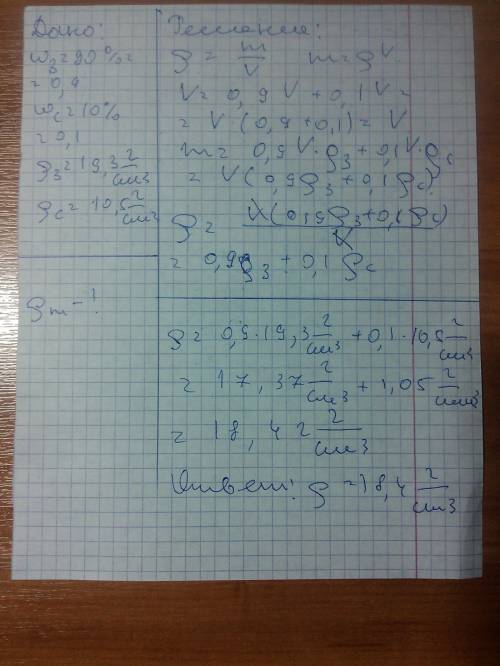 Дано:
w_з = 90% =
= 0,9
w_с = 10%
= 0,1
ρ_з = 19,3 г/см3
ρ_с = 10,5 г/см3
ρ_m - ?
Решение:
ρ = m/V m = ρV
V = 0,9 V + 0,1 V =
= V · (0,9 + 0,1) = V
m = 0,9 V · ρ_з + 0,1 V · ρ_с
= V (0,9ρ_з + 0,1 ρ_с)
ρ = V(0,9ρ_з + 0,1ρ_с)/V
= 0,9ρ_з + 0,1 ρ_с
ρ = 0,9 · 19,3 г/см3 + 0,1 · 10,5 г/см3
= 17,37 г/см3 + 1,05 г/см3
= 18,42 г/см3
Ответ: ρ = 18,4 г/см3